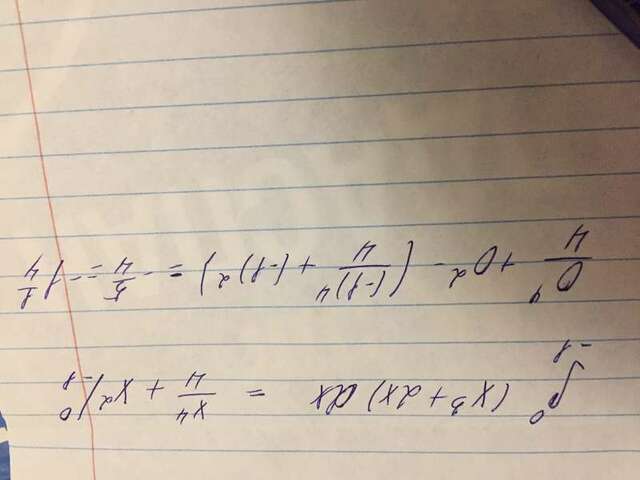 ∫₋₁⁰ (x³ + 2x) dx = x⁴/4 + x² |₋₁⁰
0⁴/4 + 0² - ((-1)⁴/4 + (-1)²) = -5/4 = -1 1/4